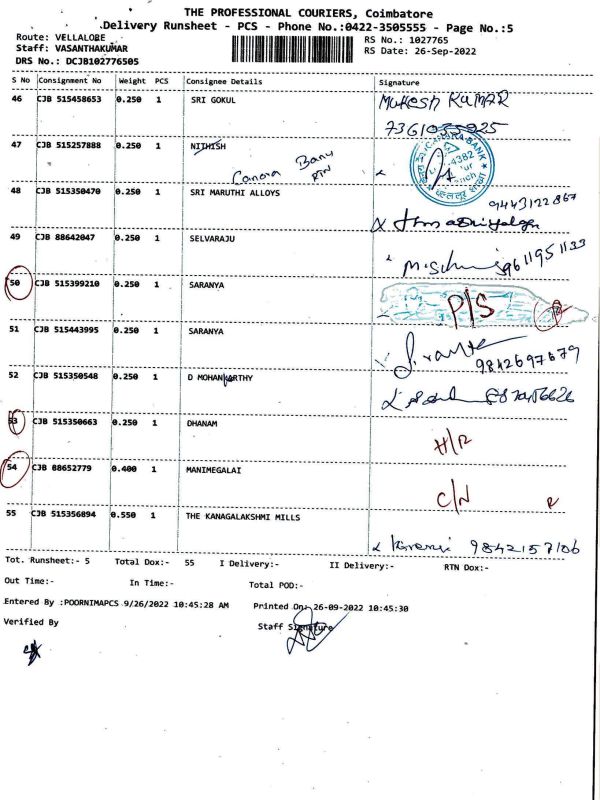 THE PROFESSIONAL COURIERS, Coimbatore
Delivery Runsheet - PCS - Phone No.:0422-3505555 - Page No.:5
Route: VELLALORE
RS No.: 1027765
Staff: VASANTHAKUMAR
RS Date: 26-Sep-2022
DRS No.: DCJB102776505
S No Consignment No Weight PCS Consignee Details Signature
46 CJB 515458653 0.250 1 SRI GOKUL Mukesh KUMAR
47 CJB 515257888 0.250 1 NITHISH
Canara Bank
RTN
48 CJB 515350470 0.250 1 SRI MARUTHI ALLOYS 9443122867
49 CJB 88642047 0.250 1 SELVARAJU 9611951133
50 CJB 515399210 0.250 1 SARANYA P/S
51 CJB 515443995 0.250 1 SARANYA 9842697679
52 CJB 515350548 0.250 1 D MOHANMORTHY
53 CJB 515350663 0.250 1 DHANAM H/R
54 CJB 88652779 0.400 1 MANIMEGALAI C/N R
55 CJB 515356894 0.550 1 THE KANAGALAKSHMI MILLS 9842157106
Tot. Runsheet:- 5 Total Dox:- 55 I Delivery:- II Delivery:- RTN Dox:-
Out Time:- In Time:- Total POD:-
Entered By :POORNIMAPCS 9/26/2022 10:45:28 AM Printed On: 26-09-2022 10:45:30
Verified By Staff Signature